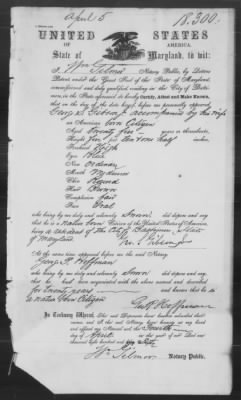 April 5
18.300.
UNITED STATES
OF AMERICA.
State of Maryland, to wit:
I, Wm Gilmor Notary Public, by Letters
Patent under the Great Seal of the State of Maryland
commissioned and duly qualified residing in the City of Baltimore,
in the State aforesaid do hereby Certify, Attest and Make Known,
that on the day of the date hereof before me personally appeared
accompanied by his wife
an American born Citizen
Aged Twenty five years or thereabouts,
Height five feet ten & one half inches,
Forehead High
Eye Blue
Nose ordinary
Mouth Moderate
Chin Round
Hair Brown
Complexion fair
Face Oval
who being by me duly and solemnly Sworn did depose and say
that he is a native born Citizen of the United States of America,
being a resident of the City of State
of Maryland.
At the same time appeared before me the said Notary
George F. Hoffman
who being by me duly and solemnly Sworn did depose and say,
that he had been acquainted with the above named and described
for twenty years and knows that he is
a native born Citizen
Hoffman
In Testimony Whereof, The said Deponents have hereunto subscribed their
names and I the said Notary have hereunto set my hand
and affixed my Notarial Seal the Fourth
day of April in the year of our Lord one
thousand eight hundred and
Wm Gilmor Notary Public.